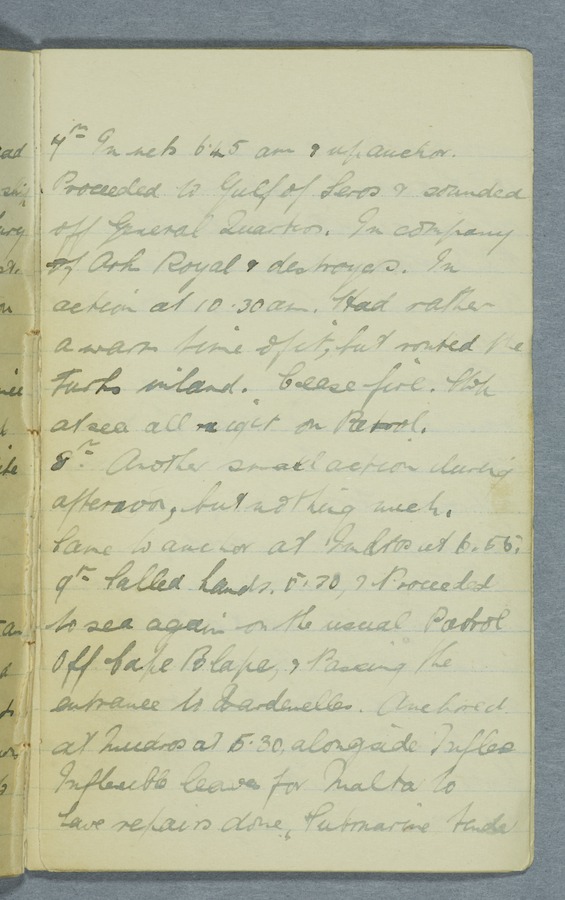 7th In nets 6.45 am & up anchor.
Proceeded to Gulf of Seros & sounded
off General Quarters. In company
of Ark Royal & destroyers. In
action at 10.30 am. Had rather
a warm time of it, but routed the
Turks inland. Cease fire.
at sea all night on Patrol.
8th. Another small action during
afternoon, but nothing much.
Came to anchor at Imbros at 6.55.
9th Called hands. 5.30, & Proceeded
to sea again on the usual Patrol
Off Cape Blape, & Passing the
entrance to Dardenelles. Anchored
at Mudros at 5.30, alongside Inflex
Inflexible leaves for Malta to
have repairs done, Submarine tender